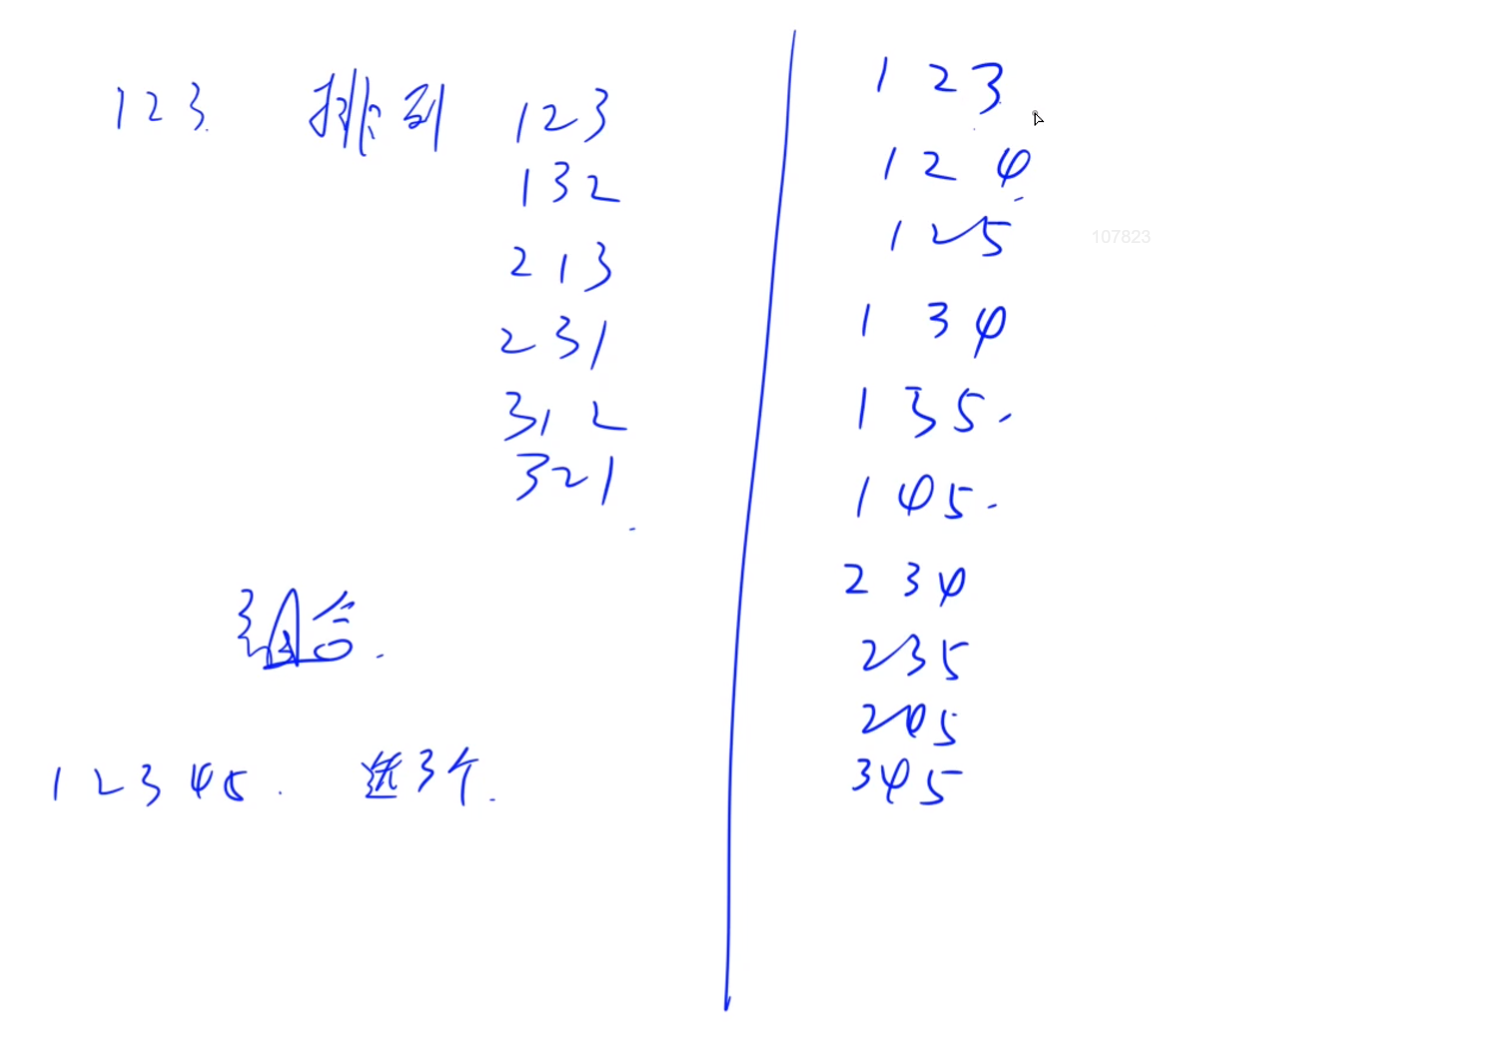 123 排列 123
132
213
231
312
321
组合
12345 选3个
123
124
125
134
135
145
234
235
245
345
107823